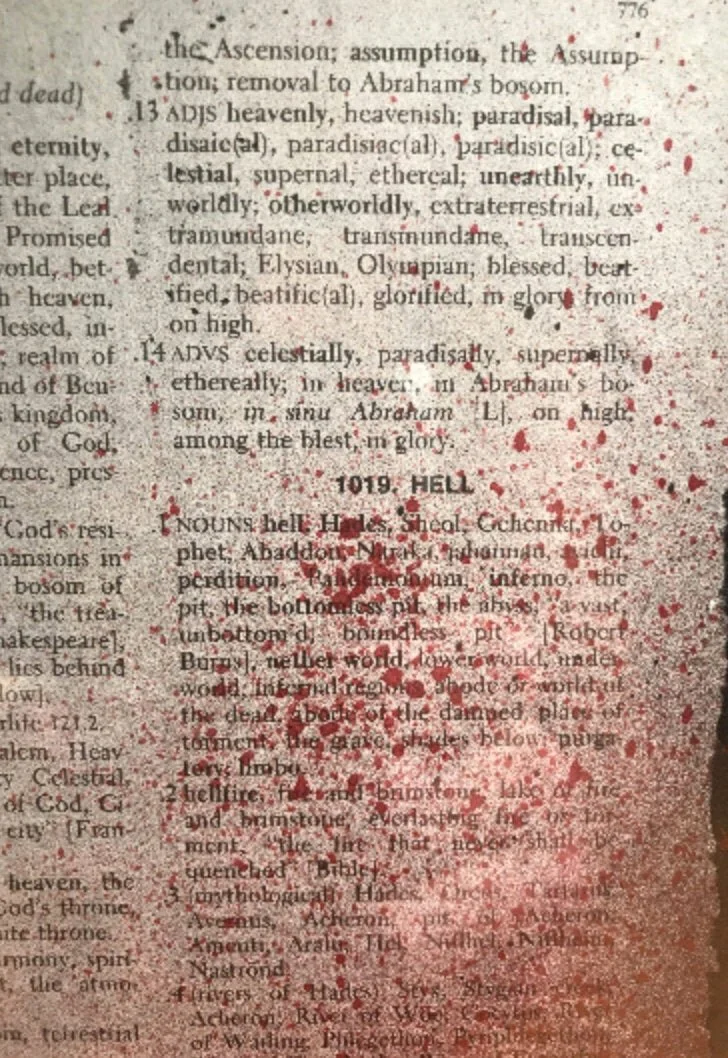 776
d dead)
eternity,
ter place,
f the Leal
Promised
world, bet-
h heaven,
lessed, in-
; realm of
nd of Beu-
s kingdom,
of God,
ence, pres-
n.
"God's resi-
mansions in
bosom of
, "the trea-
hakespeare],
lies behind
low].
rlife 121.2.
alem, Heav-
y Celestial,
of God, Ci-
city" [Fran-
heaven, the
God's throne,
ite throne.
rmony, spiri-
t, the atmo-
om, terrestrial
the Ascension; assumption, the Assump-
tion; removal to Abraham's bosom.
.13 ADJS heavenly, heavenish; paradisal, para-
disaic(al), paradisiac(al), paradisic(al); ce-
lestial, supernal, ethereal; unearthly, un-
worldly; otherworldly, extraterrestrial, ex-
tramundane, transmundane, transcen-
dental; Elysian, Olympian; blessed, beat-
ified, beatific(al), glorified, in glory; from
on high.
.14 ADVS celestially, paradisally, supernally,
ethereally; in heaven, in Abraham's bo-
som, in sinu Abraham [L], on high,
among the blest, in glory.
1019. HELL
.1 NOUNS hell, Hades, Sheol, Gehenna, To-
phet, Abaddon, Naraka, jahannan, avichi,
perdition, Pandemonium, inferno, the
pit, the bottomless pit, the abyss, "a vast,
unbottom'd, boundless pit" [Robert
Burns], nether world, lower world, under-
world, infernal regions, abode or world of
the dead, abode of the damned, place of
torment, the grave, shades below; purga-
tory; limbo.
.2 hellfire, fire and brimstone, lake of fire
and brimstone, everlasting fire or tor-
ment, "the fire that never shall be
quenched" [Bible].
.3 (mythological) Hades, Orcus, Tartarus,
Avernus, Acheron, pit of Acheron;
Amenti, Aralu; Hel, Niflhel, Niflheim,
Nastrond.
.4 (rivers of Hades) Styx, Stygian creek;
Acheron, River of Woe; Cocytus, River
of Wailing; Phlegethon, Pyriphlegethon,